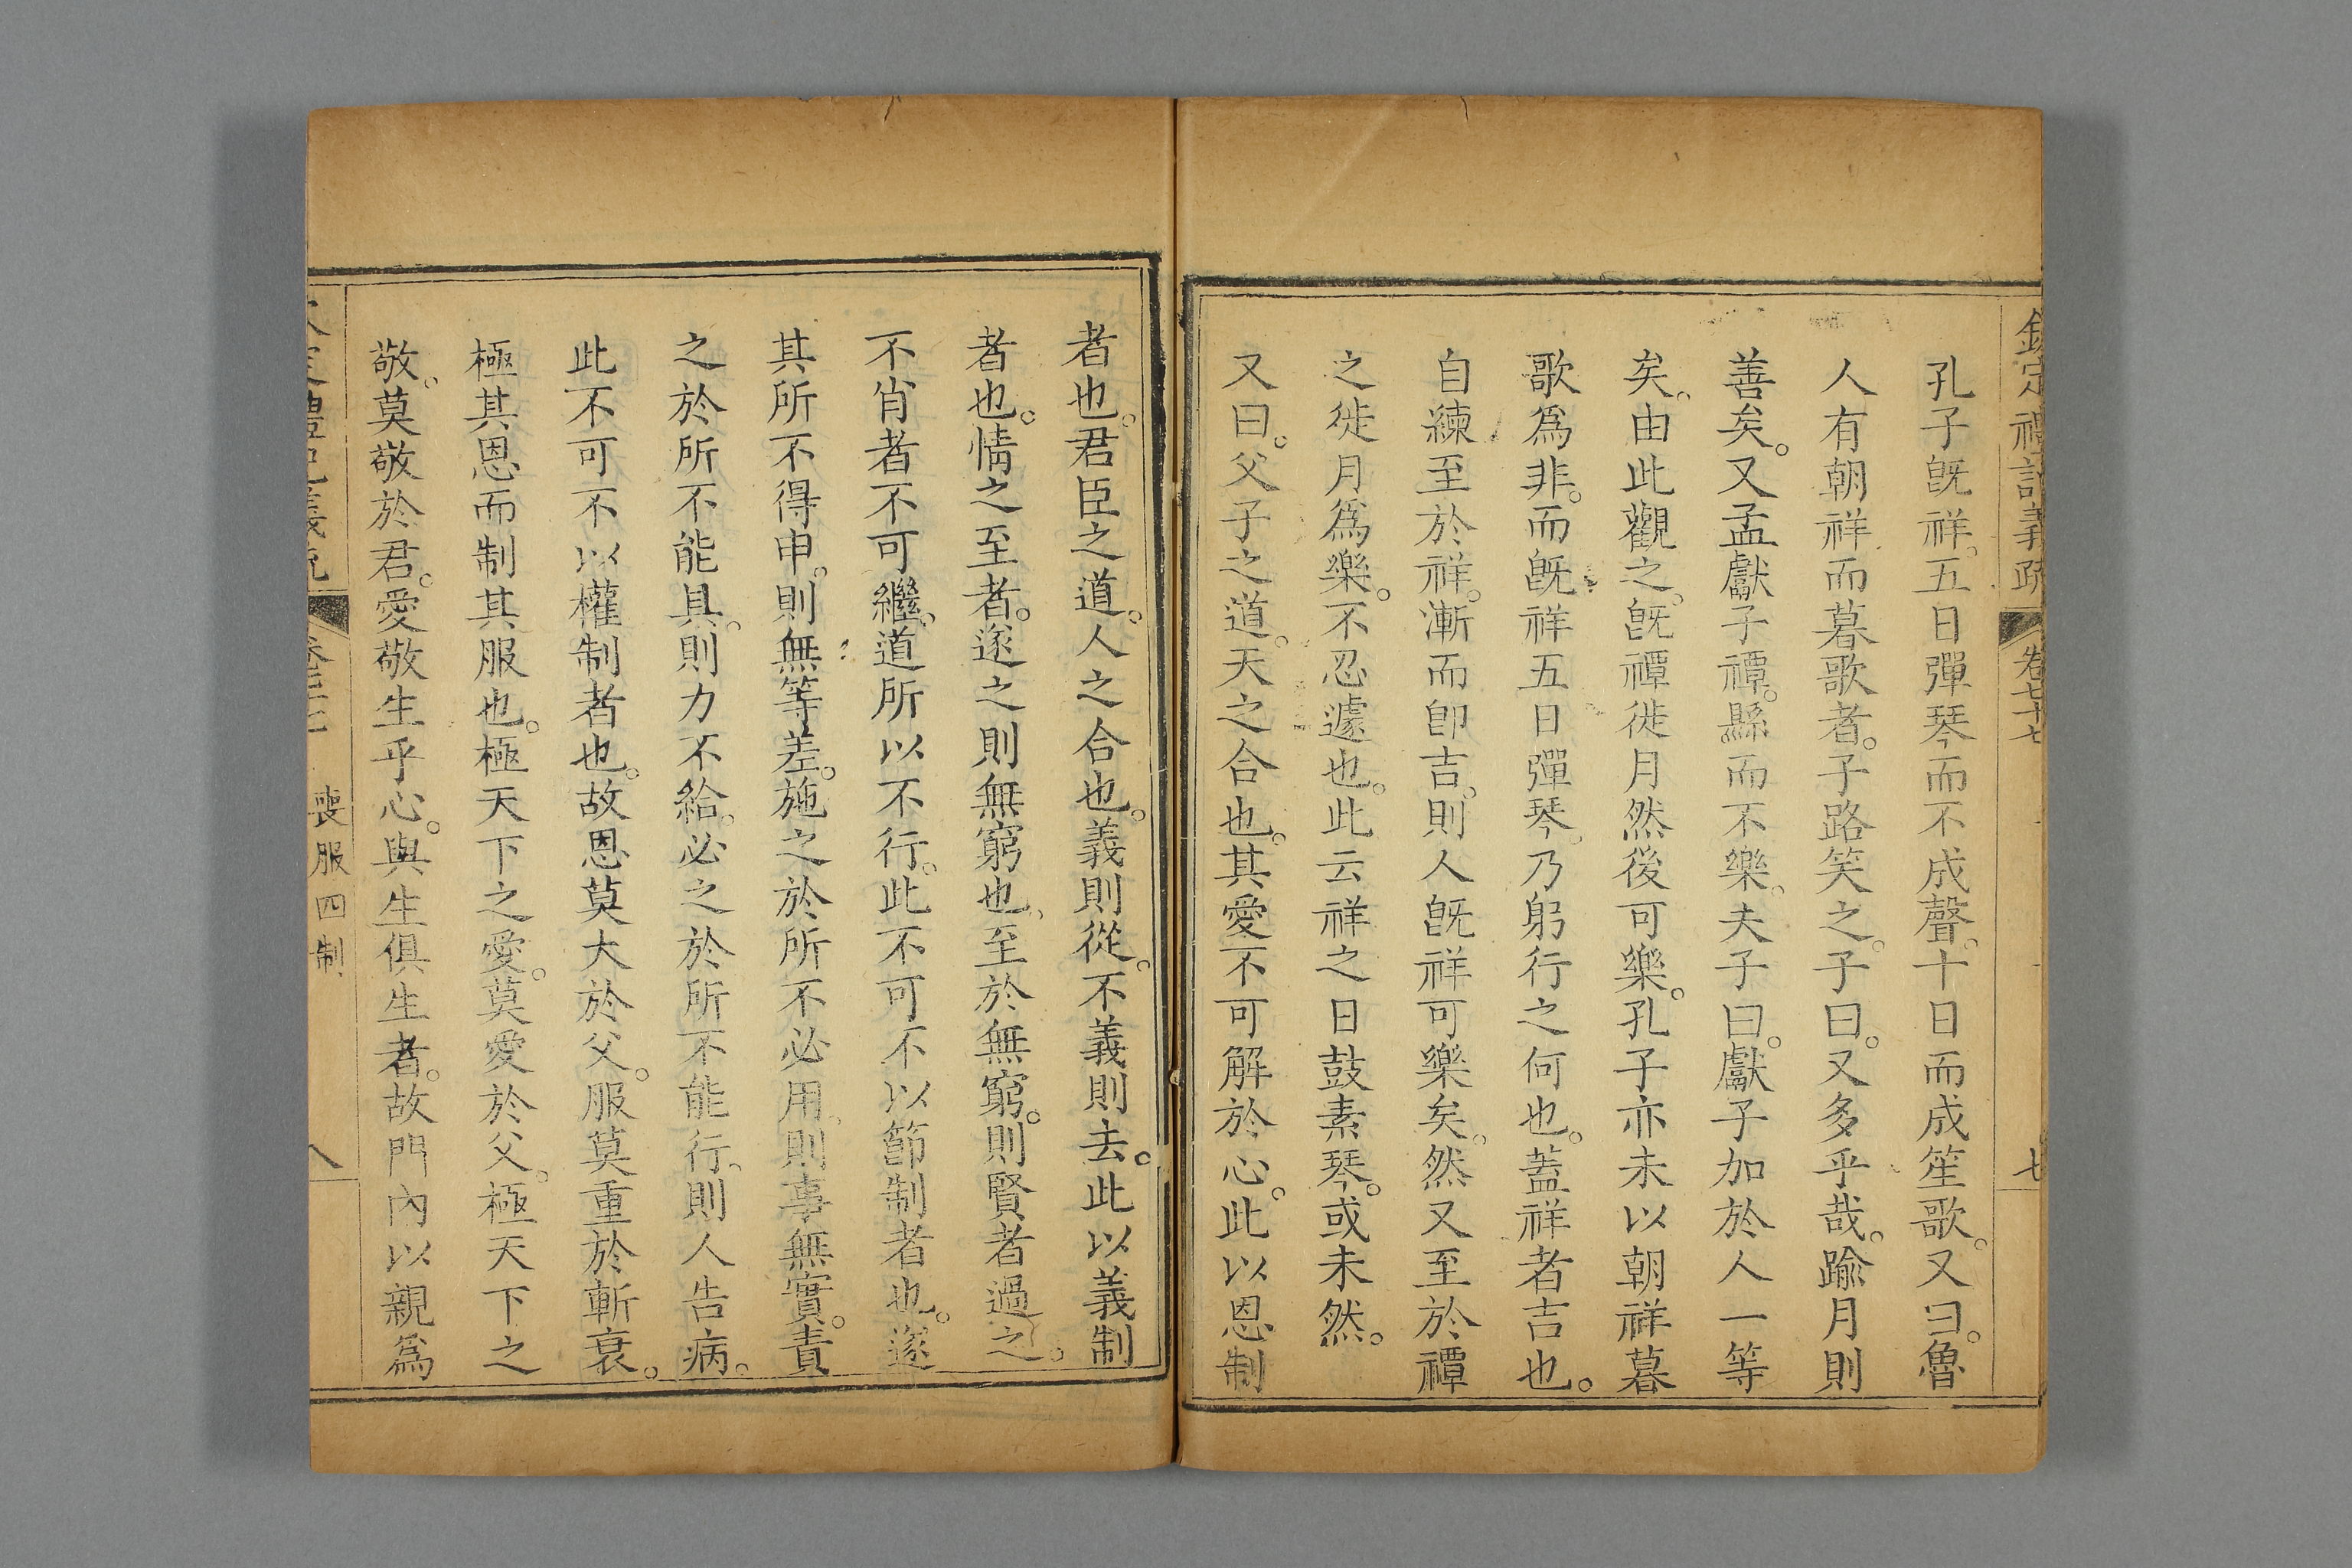 欽定禮記義疏 卷七十七 七
孔子旣祥。五日彈琴而不成聲。十日而成笙歌。又曰。魯
人有朝祥而暮歌者。子路笑之。子曰。又多乎哉。踰月則
善矣。又孟獻子禫。縣而不樂。夫子曰。獻子加於人一等
矣。由此觀之。旣禫徙月然後可樂。孔子亦未以朝祥暮
歌爲非。而旣祥五日彈琴。乃躬行之何也。蓋祥者吉也。
自練至於祥。漸而卽吉。則人旣祥可樂矣。然又至於禫
之徙月爲樂。不忍遽也。此云祥之日鼓素琴。或未然。
又曰。父子之道。天之合也。其愛不可解於心。此以恩制
者也。君臣之道。人之合也。義則從。不義則去。此以義制
者也。情之至者。遂之則無窮也。至於無窮。則賢者過之。
不肖者不可繼。道所以不行。此不可不以節制者也。遂
其所不得申。則無等差。施之於所不必用。則事無實。責
之於所不能具。則力不給。必之於所不能行。則人告病。
此不可不以權制者也。故恩莫大於父。服莫重於斬衰。
極其恩而制其服也。極天下之愛。莫愛於父。極天下之
敬。莫敬於君。愛敬生乎心。與生俱生者。故門內以親爲
欽定禮記義疏 卷七十七 喪服四制 八